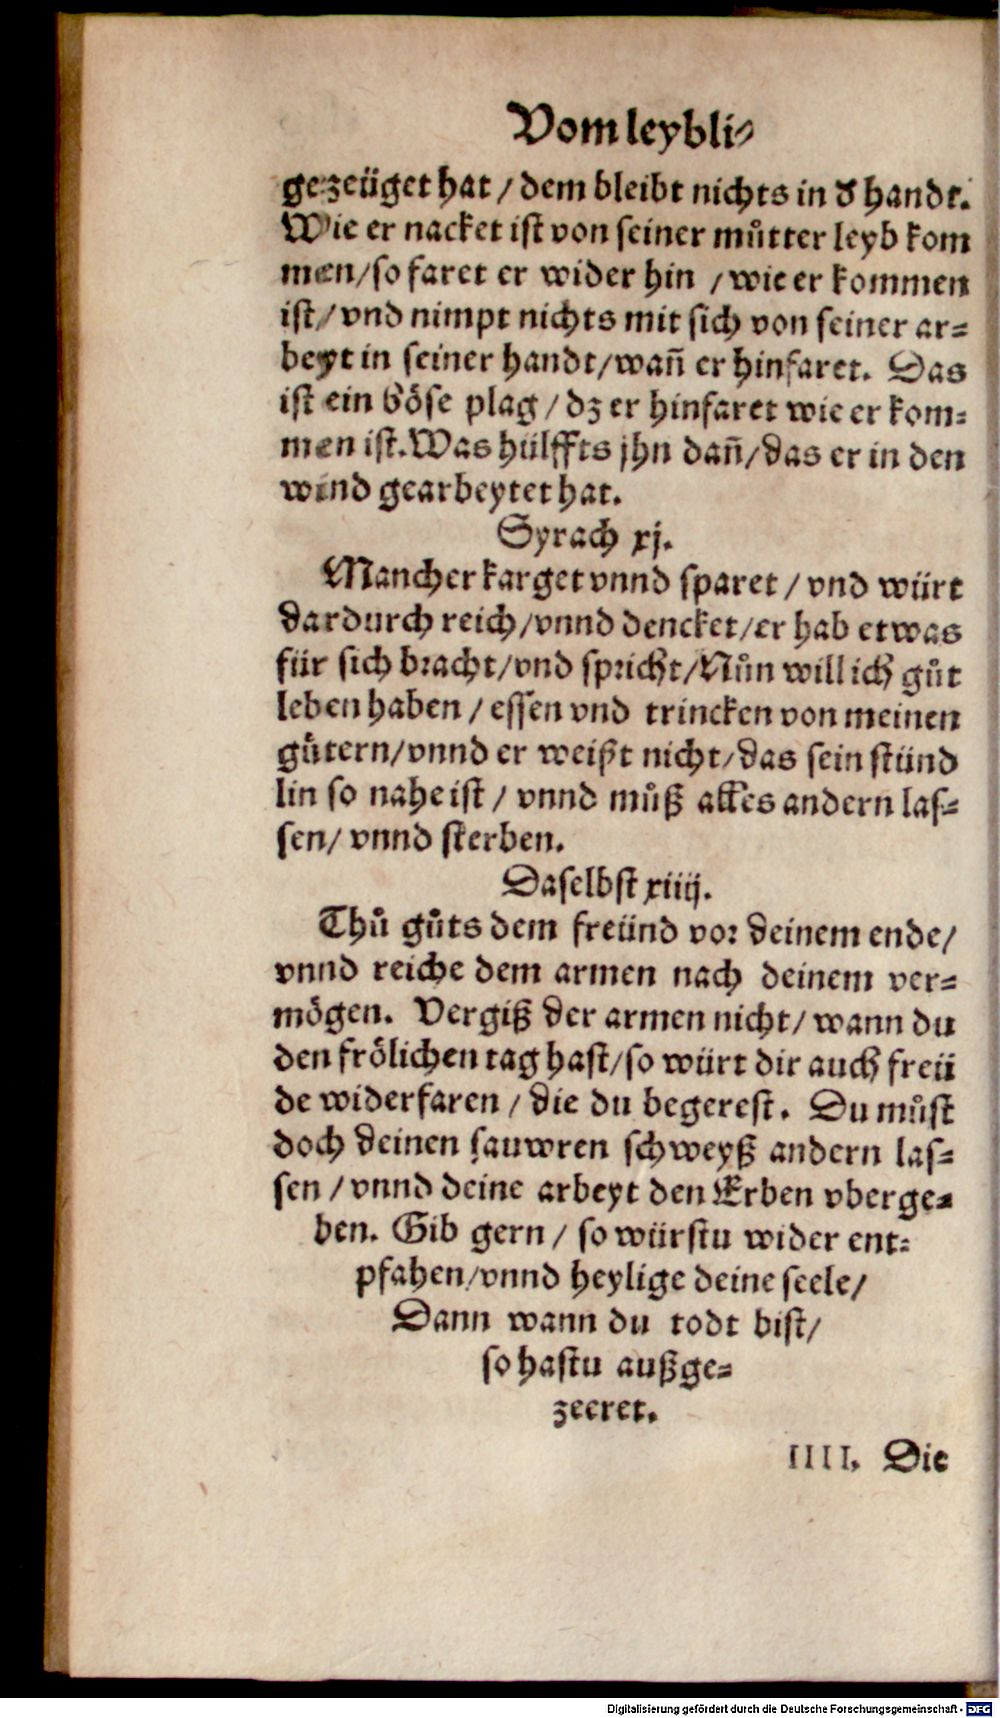 Vom leybli⸗
gezeüget hat / dem bleibt nichts in d̕ handt.
Wie er nacket ist von seiner můtter leyb kom
men/so faret er wider hin / wie er kommen
ist/ vnd nimpt nichts mit sich von seiner ar⸗
beyt in seiner handt/wañ er hinfaret. Das
ist ein böse plag / dz er hinfaret wie er kom⸗
men ist. Was hülffts jhn dañ/das er in den
wind gearbeytet hat.
Syrach xj.
Mancher karget vnnd sparet / vnd würt
dardurch reich/vnnd dencket/er hab etwas
für sich bracht/vnd spricht/Nůn will ich gůt
leben haben / essen vnd trincken von meinen
gůtern/vnnd er weißt nicht/das sein stünd
lin so nahe ist / vnnd můß alles andern las⸗
sen/ vnnd sterben.
Daselbst xiiij.
Thů gůts dem freünd vor deinem ende/
vnnd reiche dem armen nach deinem ver⸗
mögen. Vergiß der armen nicht/ wann du
den frölichen tag hast/so würt dir auch freü
de widerfaren / die du begerest. Du můst
doch deinen sauwren schweyß andern las⸗
sen / vnnd deine arbeyt den Erben vberge⸗
ben. Gib gern / so würstu wider ent⸗
pfahen/vnnd heylige deine seele/
Dann wann du todt bist/
so hastu außge⸗
zeeret.
IIII. Die
Digitalisierung gefördert durch die Deutsche Forschungsgemeinschaft - DFG